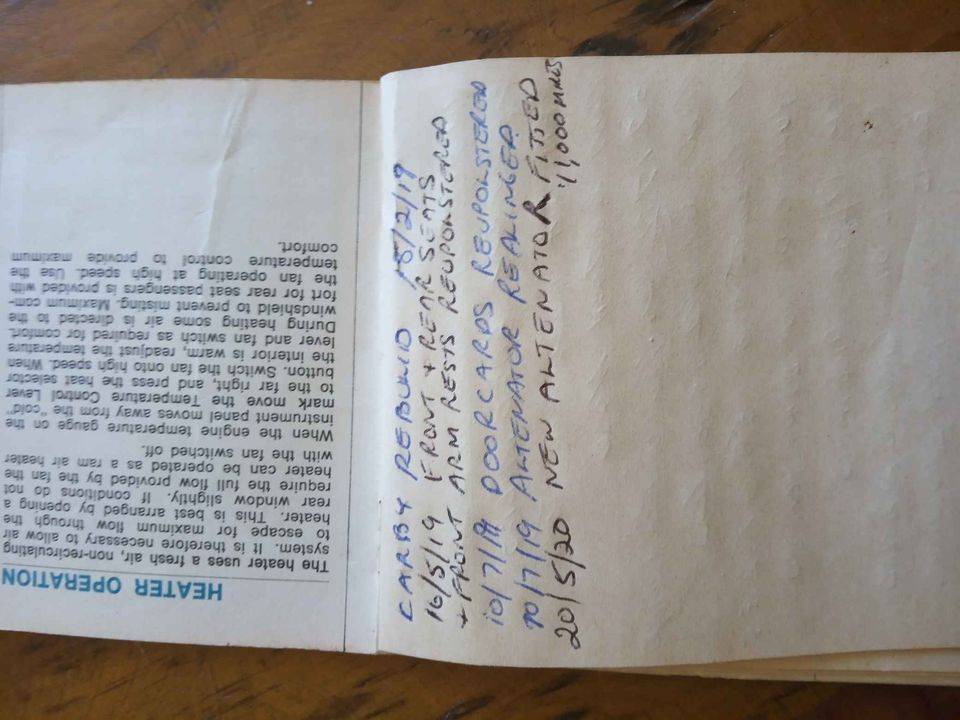 HEATER OPERATION
The heater uses a fresh air, non-recirculating
system. It is therefore necessary to allow air
to escape for maximum flow through the
heater. This is best arranged by opening a
rear window slightly. If conditions do not
require the full flow provided by the fan the
heater can be operated as a ram air heater
with the fan switched off.
When the engine temperature gauge on the
instrument panel moves away from the "cold"
mark move the Temperature Control Lever
to the far right, and press the heat selector
button. Switch the fan onto high speed. When
the interior is warm, readjust the temperature
lever and fan switch as required for comfort.
During heating some air is directed to the
windshield to prevent misting. Maximum com-
fort for rear seat passengers is provided with
the fan operating at high speed. Use the
temperature control to provide maximum
comfort.
CARBY REBUILD 18/2/19
16/5/19 FRONT + REAR SEATS
+ FRONT ARM RESTS REUPOLSTERED
10/7/19 DOORCARDS REUPOLSTERED
10/7/19 ALTENATOR REALINGED
20/5/20 NEW ALTENATOR FITTED
11,000 MILES